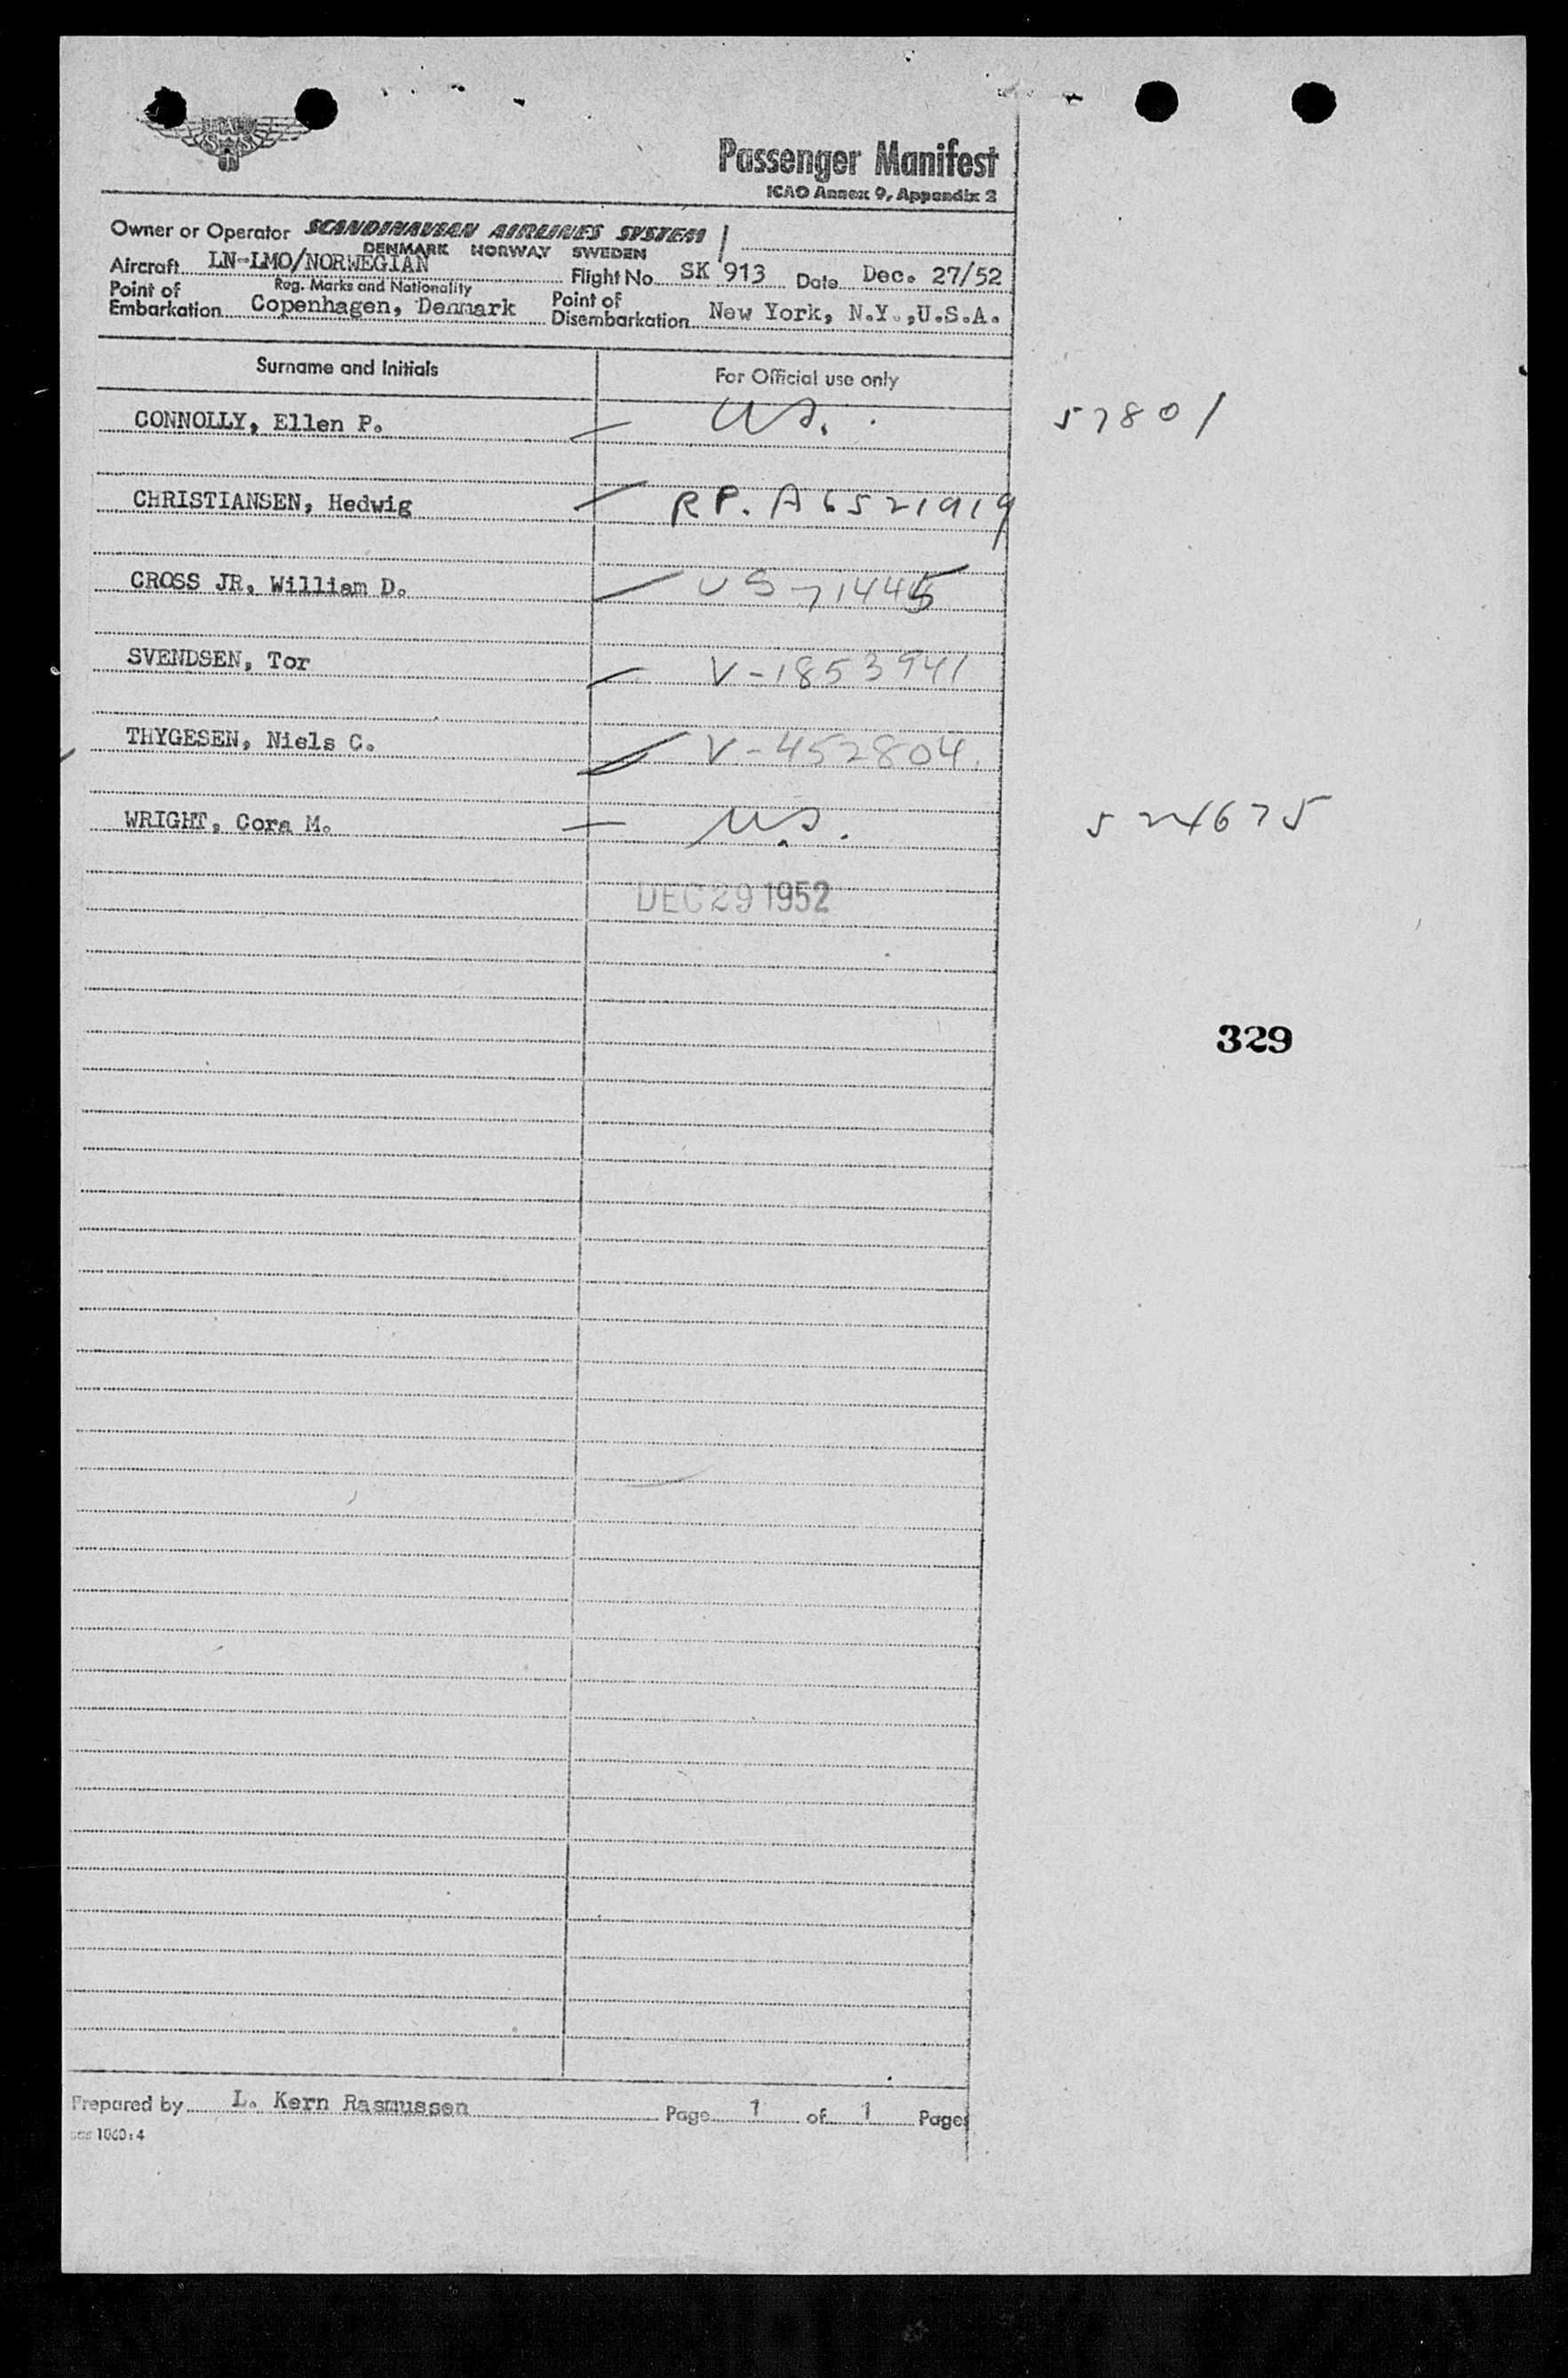 Passenger Manifest
ICAO Annex 9, Appendix 2
Owner or Operator SCANDINAVIAN AIRLINES SYSTEM
DENMARK NORWAY SWEDEN
Aircraft LN-LMO/NORWEGIAN Flight No. SK 913 Date Dec. 27/52
Reg. Marks and Nationality
Point of Embarkation Copenhagen, Denmark Point of Disembarkation New York, N.Y.,U.S.A.
Surname and Initials For Official use only
CONNOLLY, Ellen P. US. 57801
CHRISTIANSEN, Hedwig RP. A6521919
CROSS JR. William D. US 71445
SVENDSEN, Tor V-1853941
THYGESEN, Niels C. V-452804.
WRIGHT, Cora M. U.S. 524675
DEC 29 1952
329
Prepared by L. Kern Rasmussen Page 1 of 1 Pages
1060:4